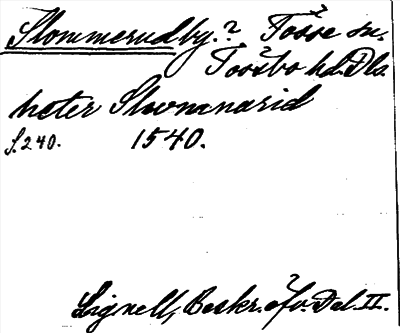 Slommerudby.? Fosse sn.
Tossbo hd. Dls.
heter Slommarid
S. 240. 1540.
Lignell, Beskr. öfv. Dal. II.